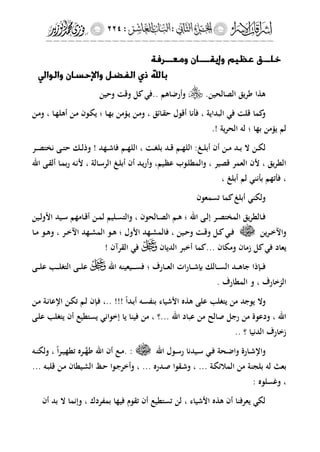 إشراقات الإسراء الجزء الثاني : الباب العاشر : ٢٢٤
خلــق عظـيم وإيقــــان ومعــــرفة
بالله ذي الفـضل والإحسـان والوالي
هذا طريق الصالحين. وأرضاهم ..في كل وقت وحين
وكما قلت في البداية ، فأنا أقول حقائق ، ومن يؤمن بها ؛ يكون من أهلها ، ومن
لم يؤمن بها ؛ له الحرية !.
لكن لا بد من أن أبلغ: اللهم قد بلغت ، اللهم فاشهد ! وذلك حتى نختصر
الطريق ، لأن العمر قصير ، والمطلوب عظيم، وأريد أن أبلغ الرسالة ، لأنه ربما ألقى الله
، فأتهم بأنني لم أبلغ ،
ولكني أبلغ كما تسمعون
فالطريق المختصر إلى الله ؛ هم الصالحون ، والتسليم لمن أقامهم سيد الأولين
والآخرين ﷺ في كل وقت وحين ، فالمشهد الأول ؛ هو المشهد الآخر ، وهو ما
يعاد في كل زمان ومكان ...كما أخبر الديان ﷻ في القرآن !
فإذا جاهد السالك بإشارات العارف ؛ فسيعينه الله ﷻ على التغلب على
الزخارف ، و المطارف .
ولا يوجد من يتغلب على هذه الأشياء بنفسه أبداً !!! ..، فإن لم تكن الإعانة من
الله ، ودعوة من رجل صالح من عباد الله ...؟ ، من فينا يا إخواني يستطيع أن يتغلب على
زخارف الدنيا ؟ ..
والإشارة واضحة في سيدنا رسول الله ﷺ : .مع أن الله طهَّره تطهيراً ، ولكنه
بعث له بلجنة من الملائكة ... ، وشقوا صدره ... ، وأخرجوا حظ الشيطان من قلبه ...
، وغسلوه :
لكي يعرفنا أن هذه الأشياء ، لن تستطيع أن تقوم فيها بمفردك ، وإنما لا بد أن